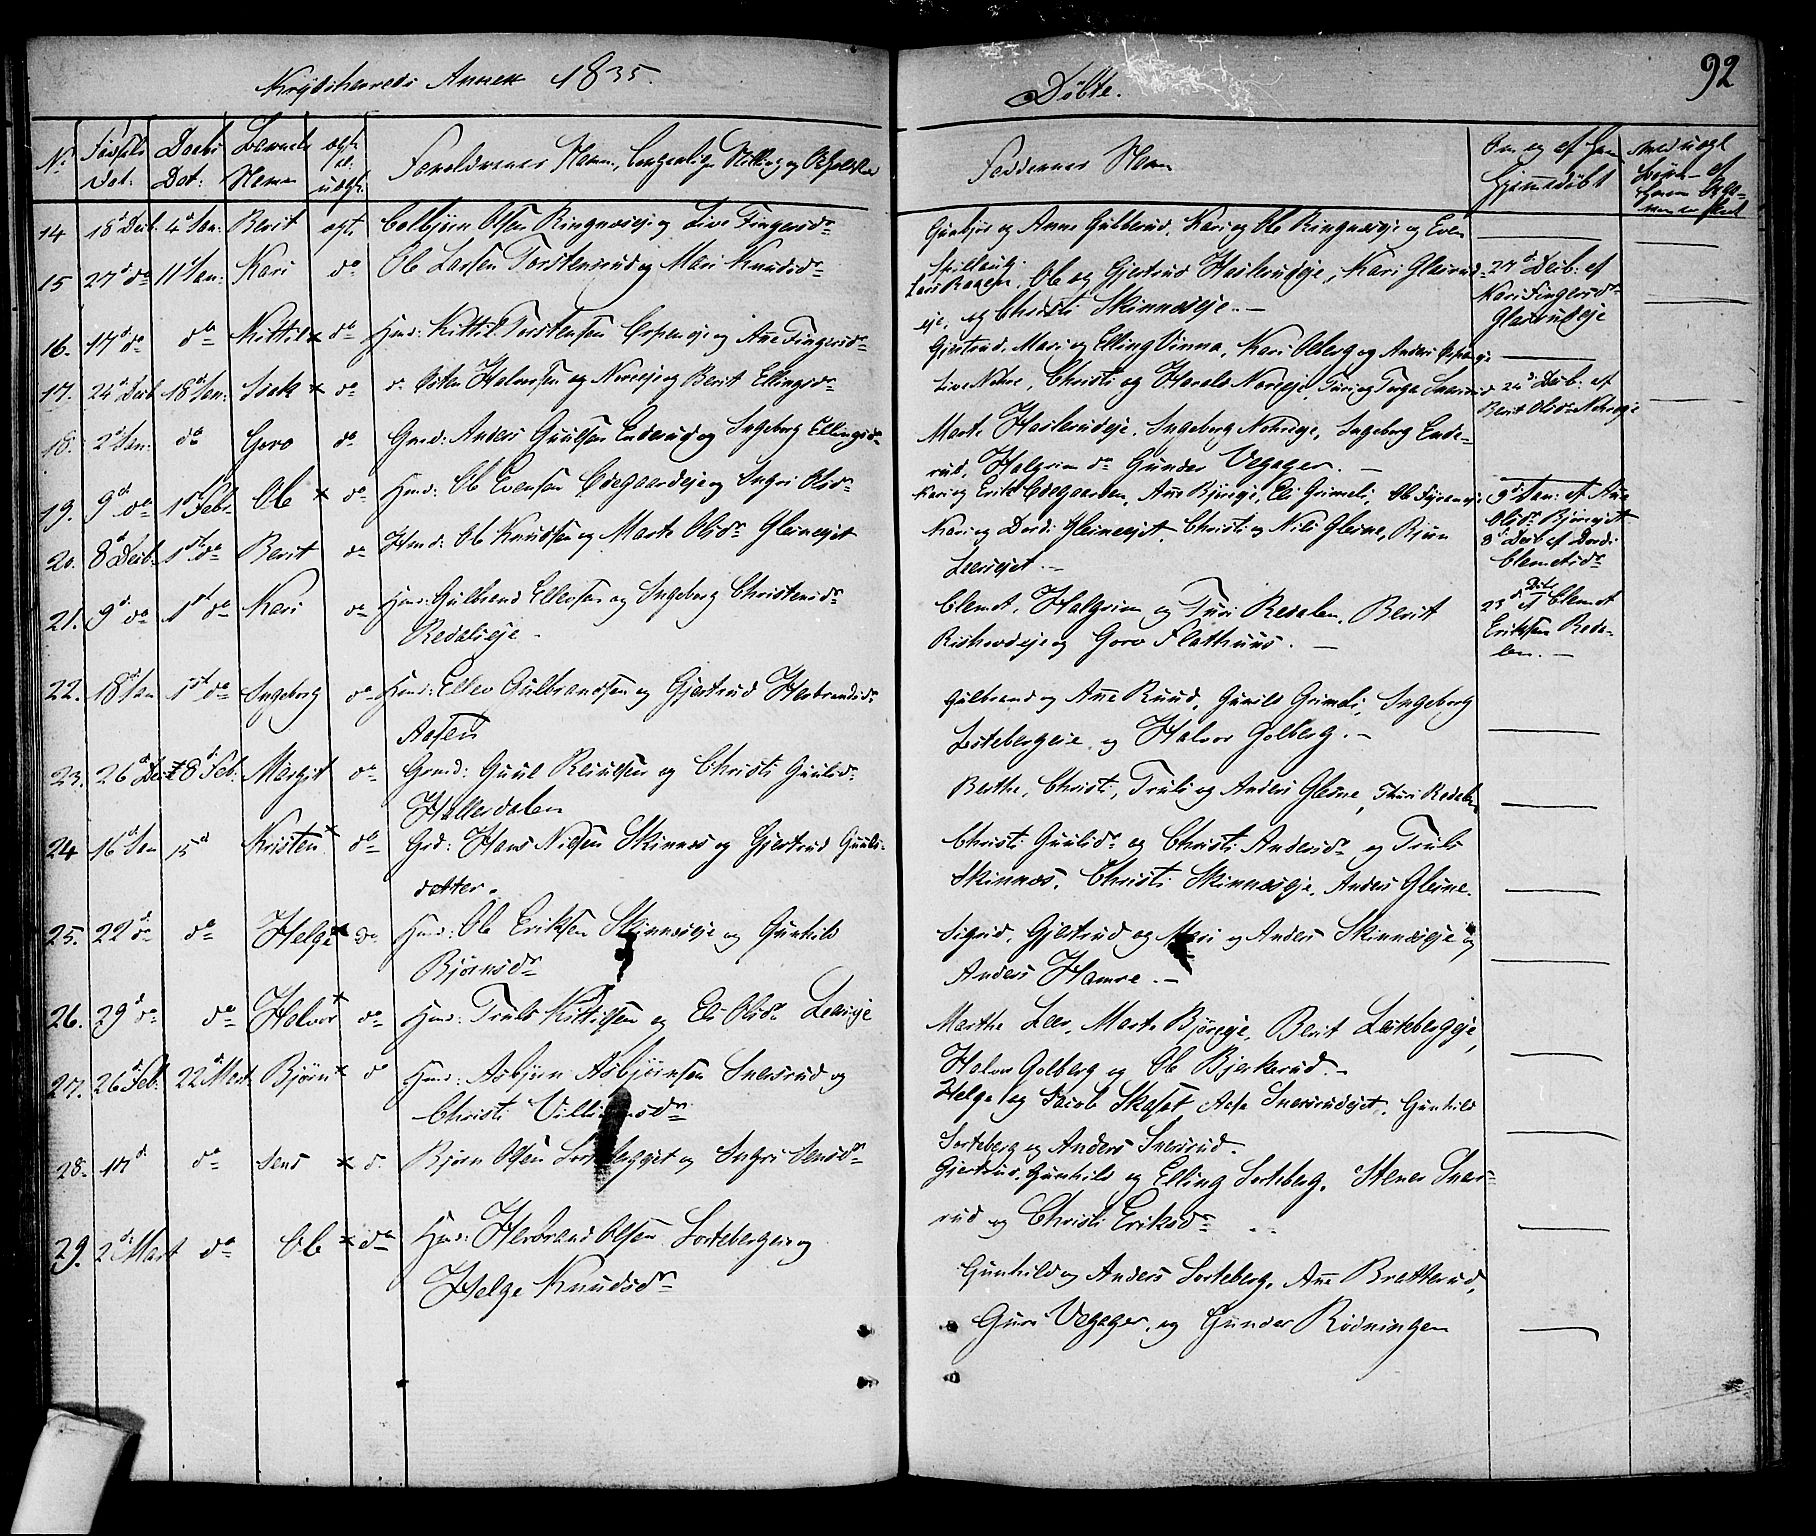 Krydsherreds Annex 1835.
Døbte.
92
No Fødsels Dat: Daabs Dat: Barnets Navn ægte el. uægte Forældrenes Navn, borgerlige Stilling og Opholdssted
Faddernes Navn
Om og af hvem hjemmedøbt
14 18d Decb: 4d Jan: Berit ægt. Colbjørn Olsen Ringnæseje og Live Fingersdr
Gunbjør og Anne Gulberud, Kari og Ole Ringnæseje og Even
15 27d do 11d Jan: Kari do Ole Larsen Torstensrud og Mari Knudsdr
Ole og Gjertrud Haslerudeje, Kari Glasrud-
eje, og Christi Skinnæseje. -
27d Decb: af
Kari Fingersdr
Glasrudeje
16. 17d do do Kittil x do Hmd: Kittil Torstensen og Ane Fingersdr
Gjertrud, Mari og Elling Vinna, Kari Olberg og Anders
17. 24d Decb 18d Jan: Isak x do Halvorsen og Noreeje og Berit Ellingsdr
Live Nohre, Christi og Harald Noreeje, Turi og
24d Decb: af
Berit Olsdr Nohreeje
18. 2d Jan: do Goro do Gmd: Anders Guulsen Enderud og Ingeborg Ellingsdr
Marte Haslerudeje, Ingeborg Nohreeje, Ingeborg Ende-
rud, Halgrim do Gunder Vegager. -
19. 9d do 1st Febr Ole x do Hmd: Ole Evensen Ødegaardseje og Ingri Olsdr
Kari og Erik Ødegaarden, Ane Bjøreeje, Eli Grimeli, Ole
9d Jan: af Ane
Olsdr Bjøreejet
20. 8d Decb: 1st do Berit do Hmd: Ole Knudsen og Marte Olsdr Glesneejet
Kari og Dordi Glesneejet, Christi og Nils Glesne, Bjørn
Leerejet. -
8d Decb af Dordi
Clemetsdr
21. 9d do 1st do Kari do Hmd: Gulbrand Ellevsen og Ingeborg Christensdr
Redalseje -
Clemet, Halgrim og Turi Redalen, Berit
og Goro Flathuus. -
23d Dito
af Clemet
Eriksen Reda-
len. -
22. 18d Jan 1st do Ingeborg do Hmd: Ellev Gulbrandsen og Gjertrud Herbrandsdr
Aasen
Gulbrand og Ane Ruud, Gunild Grimeli, Ingeborg
Sortebergeie og Halvor Golberg. -
23. 26d Decb 8d Feb: Margit do Grmd: Guul og Christi Guulsdr
Hallesdalen
Berthe, Christi, Truls og Anders Glesne, Thuri Redalen
24 16d Jan 15d Kristen x do Grd: Hans Nilsen Skinnes og Gjertrud Guuls-
datter.
Christi Guulsdr og Christi Andersdr og Truls
Skinnæs, Christi Skinnæseje, Anders Glesne.
25. 22d do do Helge x do Hmd: Ole Eriksen Skinnæseje og Gunhild
Bjørnsdr
Sigrid, Gjertrud og Mari og Anders Skinnæseje og
Anders Hamre. -
26. 29d do do Halvor x do Hmd: Truls Kittilsen og Eli Olsdr Leereje
Marthe Leer, Marte Bjøreeje, Berit Sortebergeje,
Halvor Golberg og Ole Bjerkerud. -
27. 26d Feb: 22d Mart Bjørn x do Hmd: Asbjørn Asbjørnsen Snersrud og
Christi Villumsdr
Helge og Jacob Skaset, Aase Snersrudejet, Gunhild
Sorteberg og Anders Snersrud.
28. 17d do Jens x d. Bjørn Olsen Sortebergejet og Ingri Jensdr
Gjertrud, Gunhild og Elling Sorteberg, Stener Sners-
rud og Christi Eriksdr
29. 2d Mart do Ole x do Hmd: Herbrand Olsen Sortebergeie og
Helge Knudsdr
Gunhild og Anders Sorteberg, Ane Bratterud,
Guri Vegager, og Gunder Rødningen